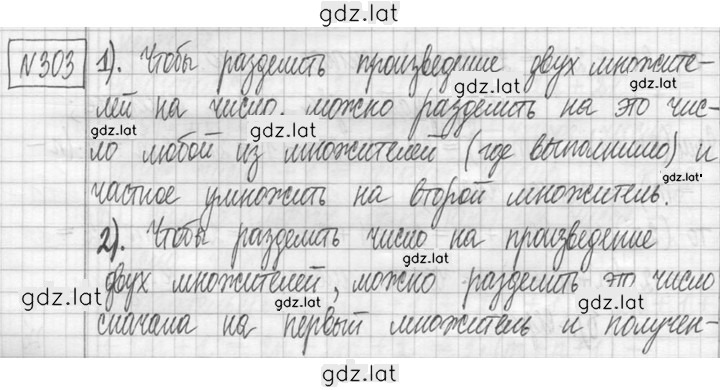 gdz.lat
№303 1). Чтобы разделить произведение двух множите-
gdz.lat
лей на число, можно разделить на это чис-
gdz.lat gdz.lat
ло любой из множителей (где выполнимо) и
gdz.lat
частное умножить на второй множитель.
2). Чтобы разделить число на произведение
gdz.lat
двух множителей, можно разделить это число
gdz.lat gdz.lat gdz.lat
сначала на первый множитель и получен-
gdz.lat